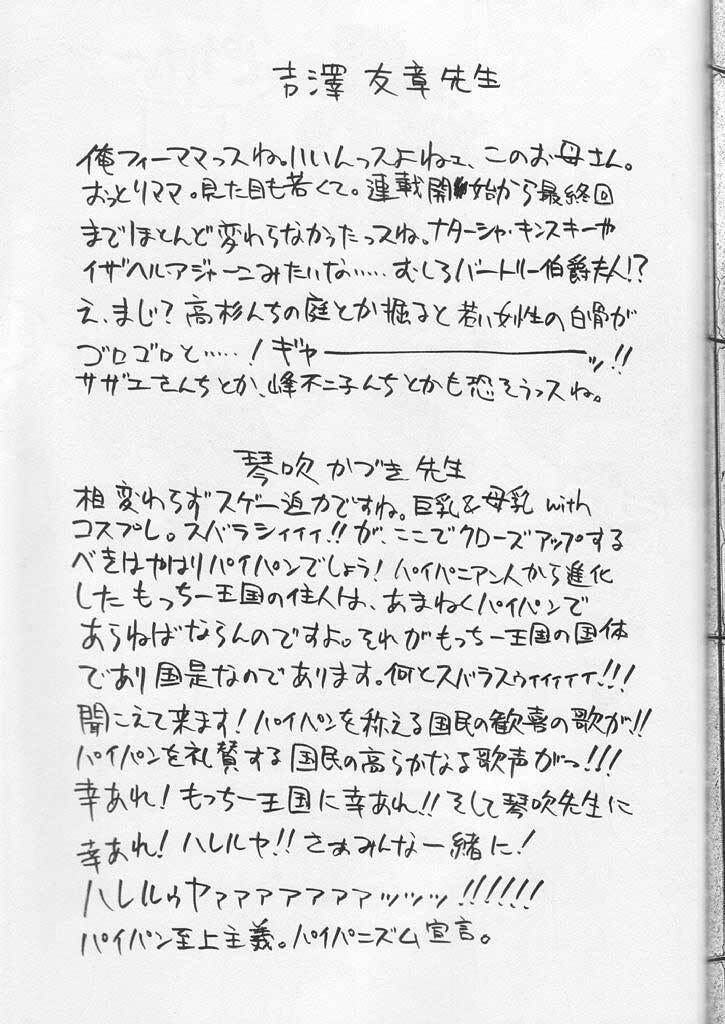 吉澤友章先生
俺フィーママっスね。いいんっスよねェ、このお母さん。
おっとりママ。見た目も若くて。連載開始から最終回
までほとんど変わらなかったっスね。ナターシャ・キンスキーや
イザベル・アジャーニみたいな……むしろバートリー伯爵夫人!?
え、まじ?高杉んちの庭とか掘ると若い女性の白骨が
ゴロゴロと……!ギャーーーーーッ!!
サザエさんちとか、峰不二子んちとかも恐そうっスね。
琴吹かづき先生
相変わらずスゲー迫力ですね。巨乳&母乳with
コスプレ。スバラシィィィ!!が、ここでクローズアップする
べきはやはりパイパンでしょう!パイパニアン人から進化
したもっちー王国の住人は、あまねくパイパンで
あらねばならんのですよ。それがもっちー王国の国体
であり国是なのであります。何とスバラスゥィィィィ!!!
聞こえて来ます!パイパンを称える国民の歓喜の歌が!!
パイパンを礼賛する国民の高らかなる歌声がっ!!!
幸あれ!もっちー王国に幸あれ!!そして琴吹先生に
幸あれ!ハレルヤ!!さぁみんな一緒に!
ハレルゥヤァァァァァァァッッッ!!!!!!
パイパン至上主義。パイパニズム宣言。